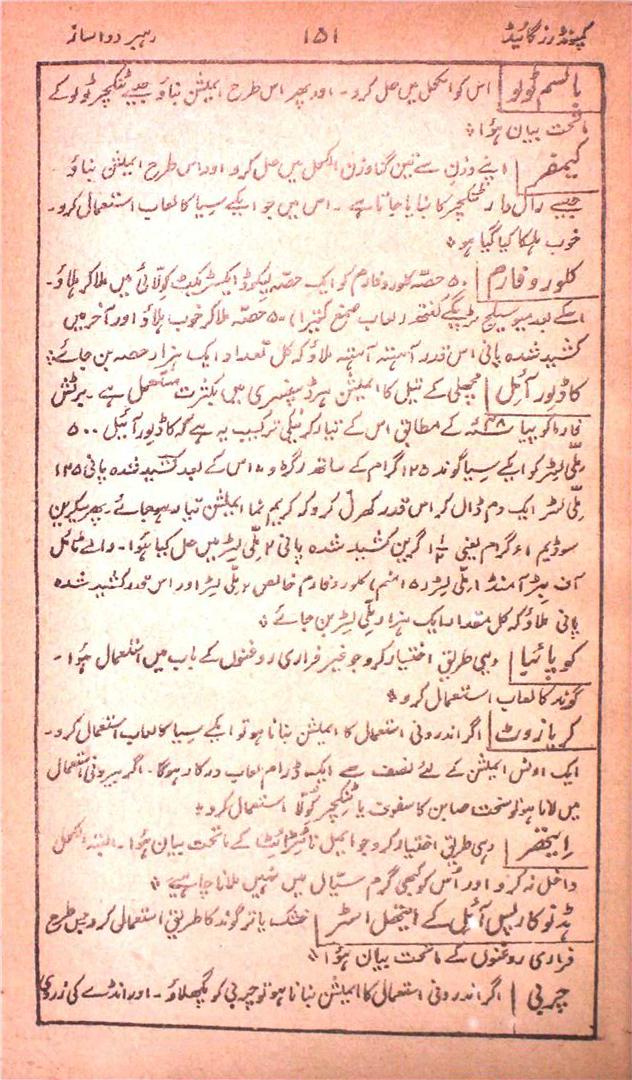 کمپونڈرز گائیڈ ۱۵۱ رہبر دوا ساز
بالسم ٹولو | اس کو الکحل میں حل کرو۔ اور پھر اس طرح ایملشن بناؤ جیسے ٹنکچر ٹولو کے
ماتحت بیان ہؤا *
کیمفر | اپنے وزن سے تین گنا وزن الکحل میں حل کرو اور اس طرح ایملشن بناؤ
جیسے رال دار ٹنکچر کا بنایا جاتا ہے۔ اس میں جو ایکے سیا کا لعاب استعمال کرو۔
خوب ہلکا کیا گیا ہو *
کلوروفارم | ۵۰ حصّہ کلوروفارم کو ایک حصّہ لیکوڈ ایکسٹریکٹ کولائی میں ملا کر ہلاؤ۔
اسکے بعد میوسیلج ٹریگے کنتھ (لعاب صمغ کتیرا) ۵۰۰ حصّہ ملا کر خوب ہلاؤ اور آخر میں
کشید شدہ پانی اس قدر آہستہ آہستہ ملاؤ کہ کل تعداد ایک ہزار حصہ بن جائے *
کاڈلور آئل | مچھلی کے تیل کا ایملشن ہر ڈسپنسری میں بکثرت مستعمل ہے۔ برٹش
فارماکوپیا ۴۸ء کے مطابق اس کے تیار کرنیکی ترکیب یہ ہے کہ کاڈلور آئیل ۵۰۰
ملّی لیٹر کو ایکے سیا گوند ۱۲۵ گرام کے ساتھ رگڑو۔ اس کے بعد کشید شدہ پانی ۱۲۵
ملّی لٹر ایک دم ڈال کر اس قدر کھرل کرو کہ کریم نما ایملشن تیار ہو جائے۔ پھر سکرین
سوڈیم ۱ء گرام یعنی ۱½ گرین کشید شدہ پانی ۲ ملّی لیٹر میں حل کیا ہوا۔ والے ٹائل
آف بٹر آمنڈ ۱ ملّی لیٹر (۱۵ منم) کلوروفارم خالص ۲ ملّی لیٹر اور اس قدر کشید شدہ
پانی ملاؤ کہ کل مقدار ایک ہزار ملّی لیٹر بن جائے *
کوپائبا | وہی طریق اختیار کرو جو غیر فراری روغنوں کے باب میں استعمال ہؤا۔
گوند کا لعاب استعمال کرو *
کریازوٹ | اگر اندرونی استعمال کا ایملشن بنانا ہو تو ایکے سیا کا لعاب استعمال کرو۔
ایک اونس ایملشن کے لئے نصف سے ایک ڈرام لعاب درکار ہوگا۔ اگر بیرونی استعمال
میں لانا ہو تو سخت صابن کا سفوف یا ٹنکچر کولا استعمال کرو *
ایتھر | وہی طریق اختیار کرو جو ایمل نائیٹرائٹ کے ماتحت بیان ہؤا۔ البتہ الکحل
داخل نہ کرو اور اُس کو کبھی گرم سیال میں نہیں ملانا چاہیے *
ہڈنوکارپس آئل کے ایتھل اسٹر | خشک یا تر گوند کا طریق استعمال کرو جس طرح
فراری روغنوں کے ماتحت بیان ہؤا *
چربی | اگر اندرونی استعمال کا ایملشن بنانا ہو تو چربی کو پگھلاؤ۔ اور انڈے کی زردی